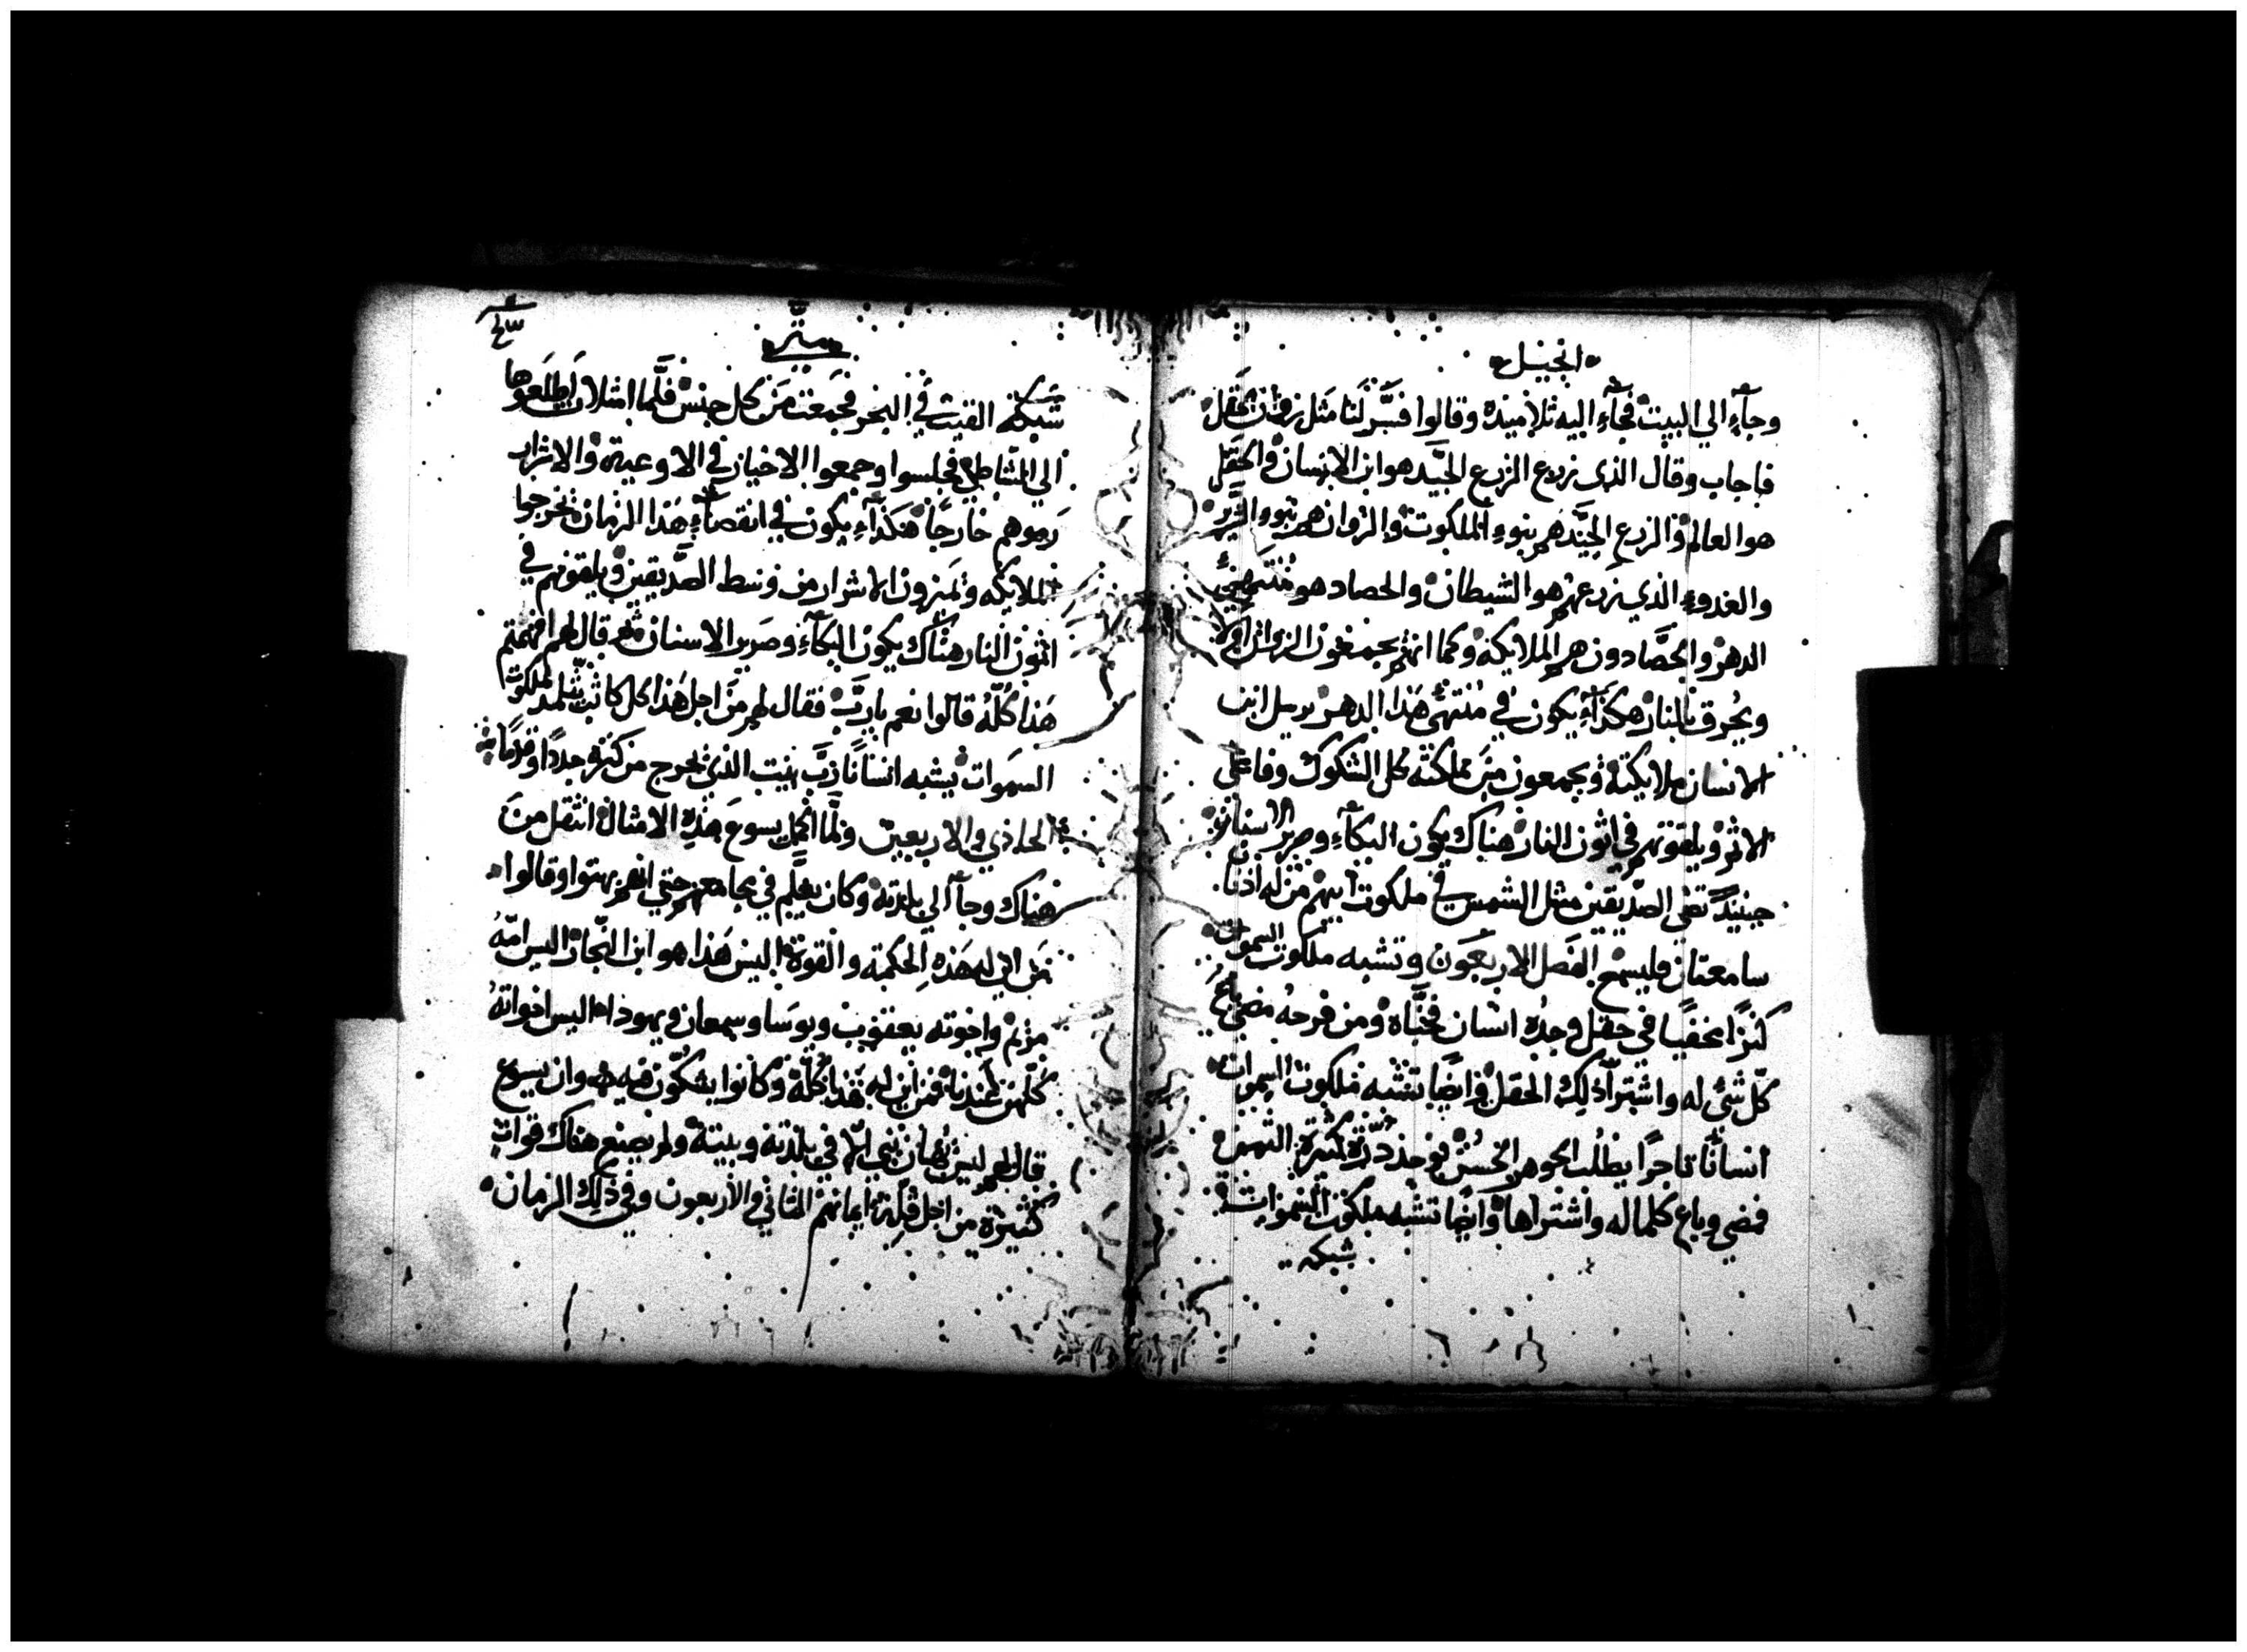 انجيل
وجآء الي البيت فجآء اليه تلاميذه وقالوا فسّر لنا مثل زوان الحقل
فاجاب وقال الذي زرع الزرع الجيّد هو ابن الانسان والحقل
هو العالم والزرع الجيّد هم بنوء الملكوت والزوان هم بنوء الشرير
والعدوء الذي زرعهم هو الشيطان والحصاد هو منتهيٰ
الدهر والحصّادون هم الملايكة وكما انهم يجمعون الزوان اولا
ويُحرق بالنار هكذآء يكون في مُنتهىٰ هذا الدهر يرسل ابن
الانسان ملايكته ويجمعون من مملكته كل الشكوك وفاعلي
الاثم ويلقونهم في اتون النار هناك يكون البكآء وصرير الاسنان
حينيذٍ تضي الصدّيقين مثل الشمس في ملكوت ابيهم من له اذنان
سامعتان فليسمع الفصل الاربعون وتشبه ملكوت السموات
كنزًا مخفيًا في حقل وجدُه انسان فخبّاه ومن فرحه مضى باع
كلّ شيٍ له واشترآ ذلك الحقل وايضًا تشبه ملكوت السموات
انسانًا تاجرًا يطلُب الجوهر الحسن فوجد درّة كثيرة الثمن
فمضي وباع كلما له واشتراها وايضًا تشبه ملكوت السموات
شبكه
متّى
شبكة القيت في البحر فجمعت من كل جنس فلّما امتلات اطلعوها
الي الشاطي فجلسوا وجمعوا الاخيار في الاوعية والاشرار
رموهم خارجًا هكذآء يكون في انقضآء هذا الزمان تخرجوا
الملايكه ويميزون الاشرار من وسط الصدّيقين ويلقونهم في
اتون النار هناك يكون البكآء وصرير الاسنان ثم قال لهم افهمتم
هَذا كُلّهُ قالوا نعم يا ربّ فقال لهم من اجل هذا كل كاتب تتلمد لملكوت
السموات يشبه انسانًا ربّ بيت الذي يخرج من كنزه جددًا وقدمًا
الحادي والاربعين ولمّا اكمل يسوع هذِهِ الامثال انتقل من
هناك وجآ الي بلدته وكان يعلّم في مجامعهم حتي انهم بهتوا وقالوا
من اين له هَذهِ الحكمة والقوة اليس هَذا هو ابن النّجار اليس امّهُ
مريم واخوته يعقوب ويوسا وسمعان ويهوذا اليس اخواتهُ
كُلّهن عندنا فمن اين له هَذا كُلّه وكانوا يشكّون فيه وان يسوع
قال لهم ليس يُهان نبي الّا في بلدته وبيته ولم يصنع هناك قوات
كثيرة من اجل قلة ايمانهم الثاني والاربعون وفي ذلك الزمان